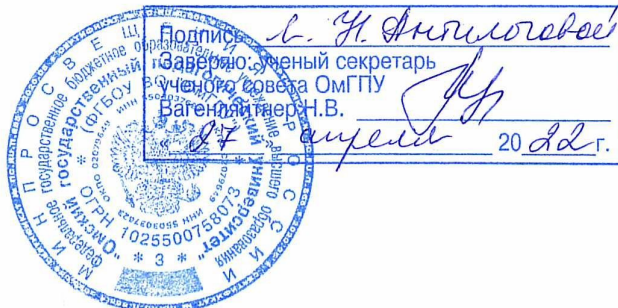 Подпись Л. Н. Антилоговой
Заверяю: ученый секретарь
ученого совета ОмГПУ
Вагенляйтнер Н.В.
« 27 » апреля 20 22 г.
МИНПРОСВЕЩЕНИЯ РОССИИ
Федеральное государственное бюджетное образовательное учреждение высшего образования
"Омский государственный педагогический университет"
(ФГБОУ ВО
ОГРН 1025500758073
* 3 *